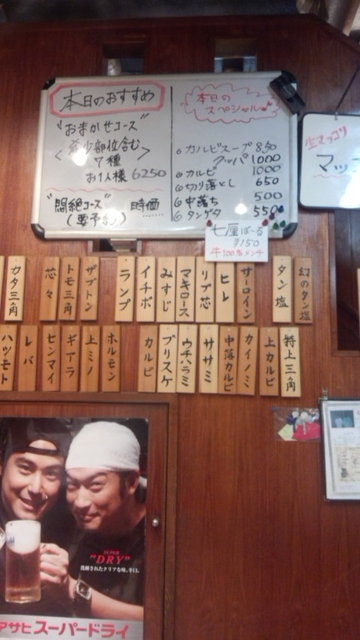 本日のおすすめ
"おまかせコース"
希少部位含む
7種
お1人様 6250
"悶絶コース" 時価
(要予約)
本日の
スペシャル
カルビスープ 850
クッパ 1000
カルビ 1000
切り落とし 650
中落ち 500
タンゲタ 550
七厘ばーる
¥150
牛100%メンチ
生マッコリ
マッ
幻のタン塩
タン塩
サーロイン
ヒレ
リブ芯
マキロース
みすじ
イチボ
ランプ
ザブトン
トモ三角
芯々
カタ三角
特上三角
上カルビ
カイノミ
中落カルビ
ササミ
ウチハラミ
ブリスケ
カルビ
ホルモン
上ミノ
ギアラ
センマイ
レバ
ハツモト
SUPER
"DRY"
洗練されたクリアな味、辛口。
アサヒスーパードライ